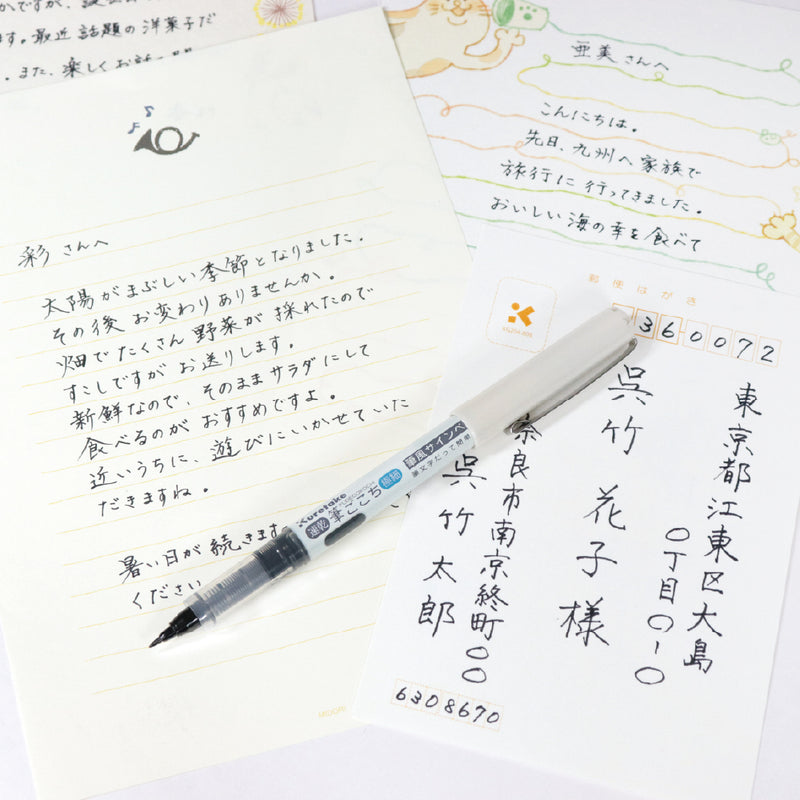 ます。最近話題の洋菓子だ
また、楽しくお話
彩さんへ
太陽がまぶしい季節となりました。
その後お変わりありませんか。
畑でたくさん野菜が採れたので
すこしですがお送りします。
新鮮なので、そのままサラダにして
食べるのがおすすめですよ。
近いうちに、遊びにいかせていた
だきますね。
暑い日が続きます
ください
亜美さんへ
こんにちは。
先日、九州へ家族で
旅行に行ってきました。
おいしい海の幸を食べて
郵便はがき
360072
東京都江東区大島
〇丁目〇-〇
呉竹 花子様
奈良市南京終町〇〇
呉竹 太郎
6308670
Kuretake
速乾 筆ごこち 極細
筆風サインペ
筆文字だって簡単
MIDORI